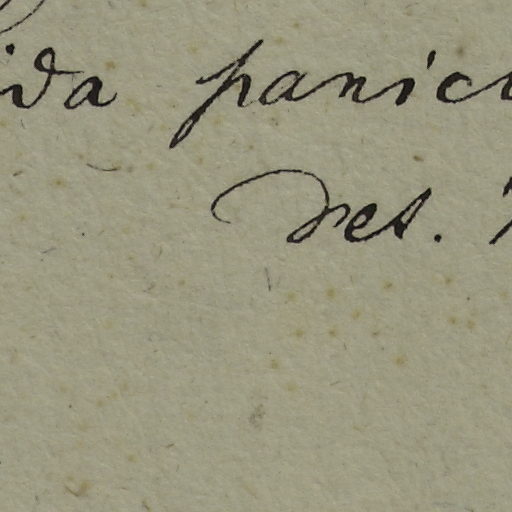 ida panicu
Det.